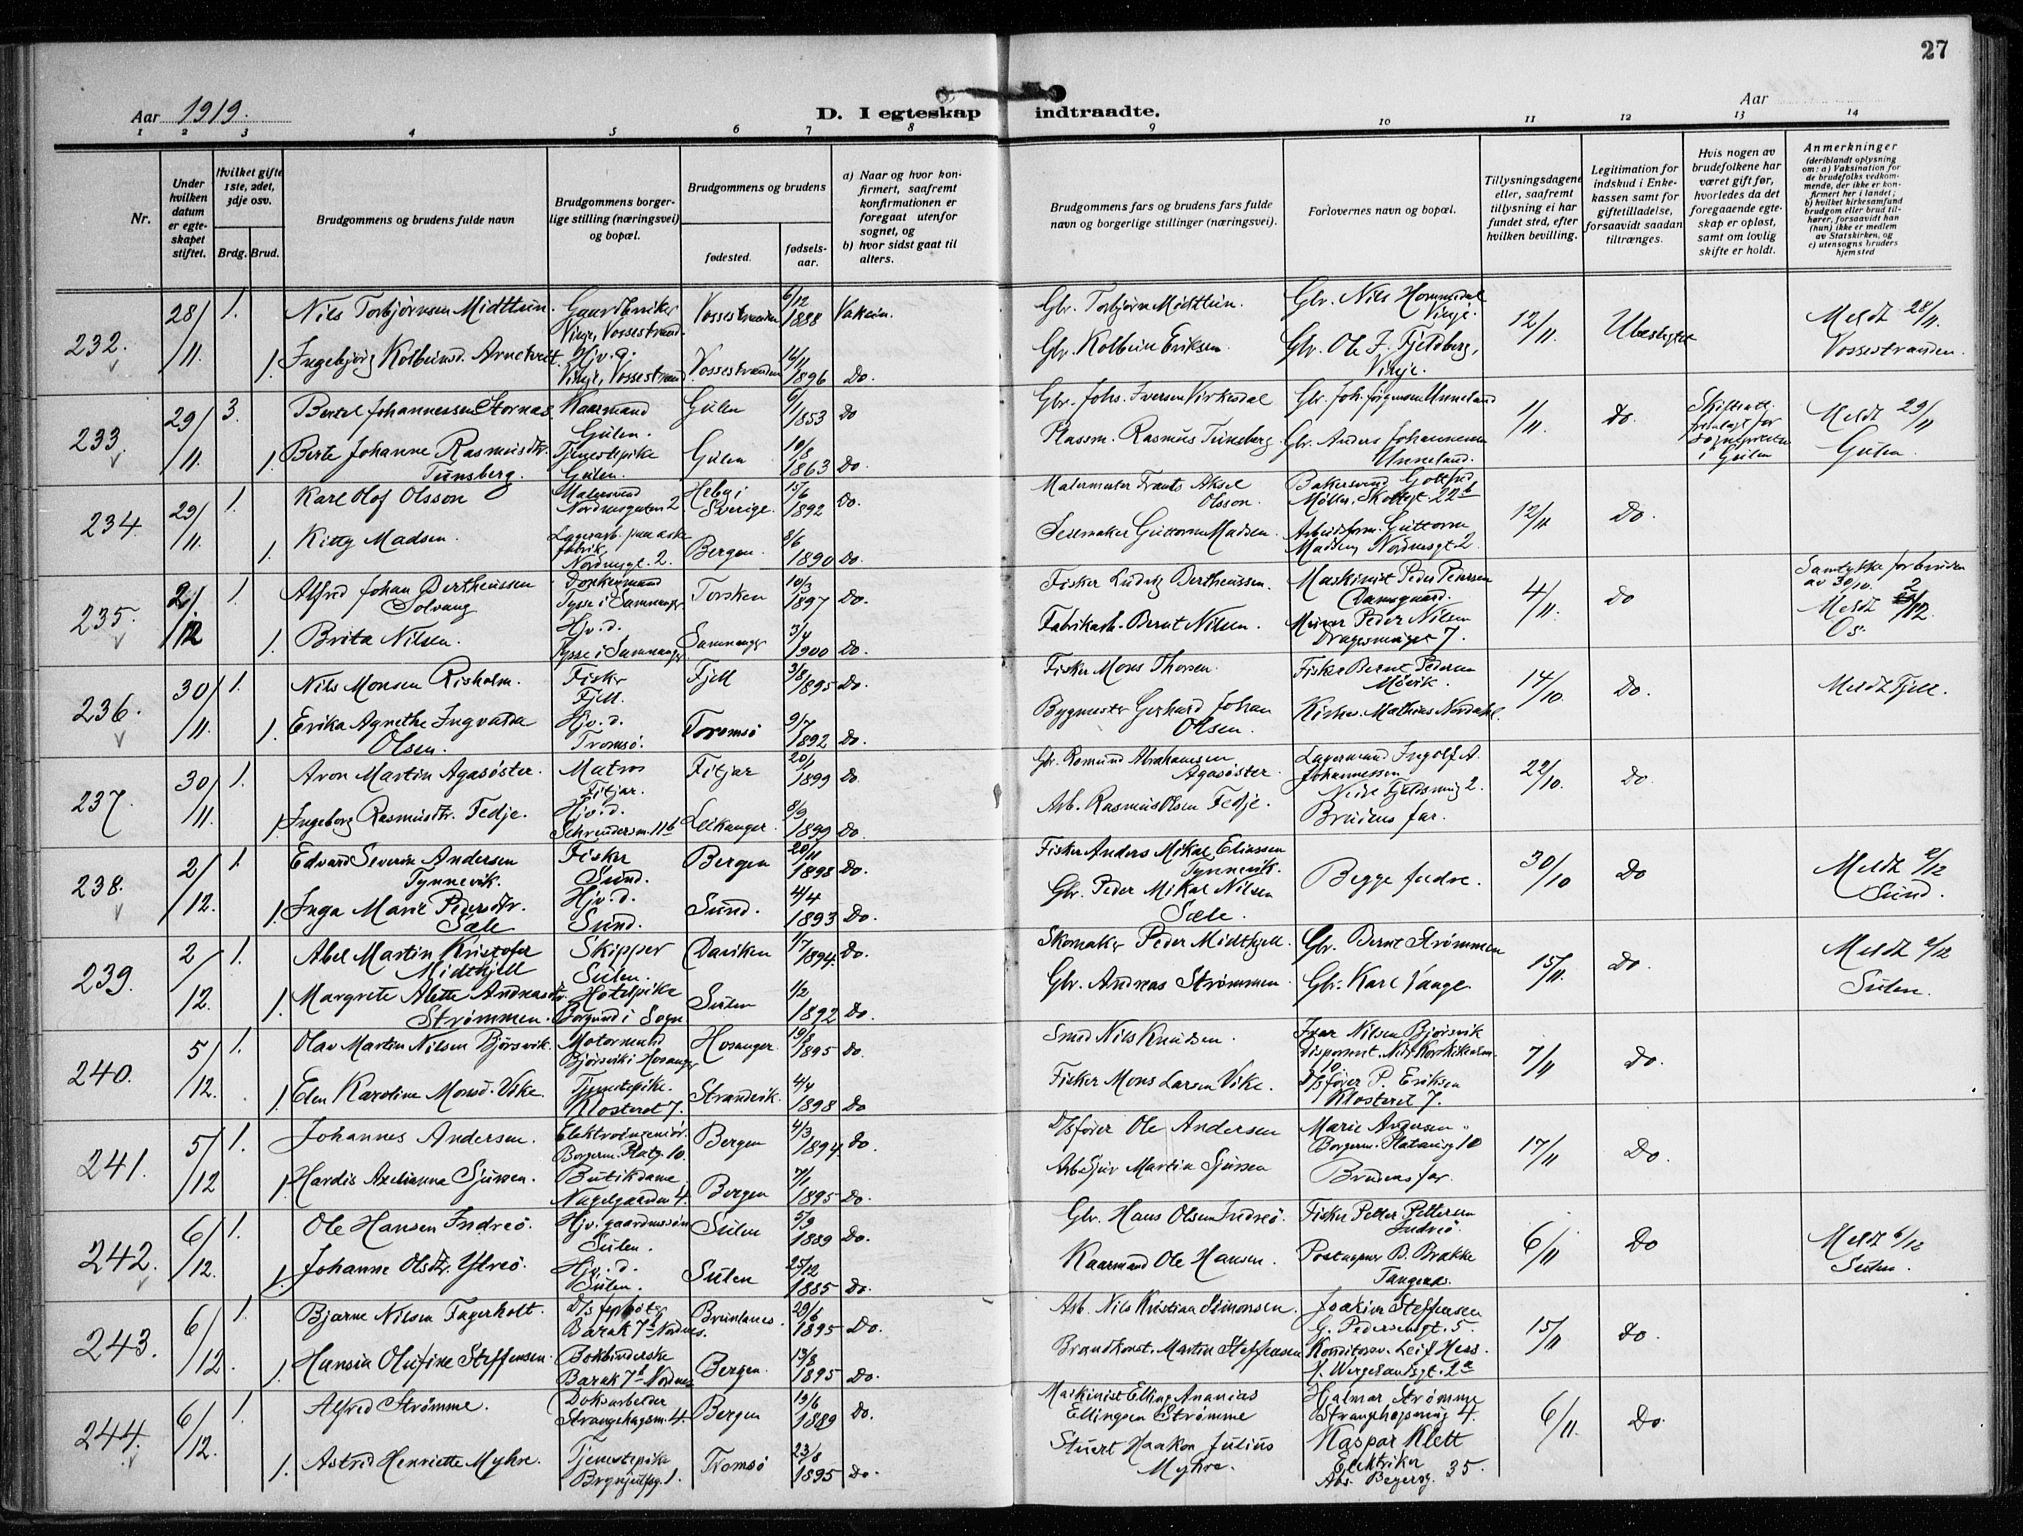 27
Aar 1919.
D. I egteskap indtraadte.
Aar
1 2 3 4 5 6 7 8 9 10 11 12 13 14
Nr.
Under hvilken datum er egteskapet stiftet.
Hvilket gifte 1ste, 2det, 3dje osv.
Brdg. Brud.
Brudgommens og brudens fulde navn
Brudgommens borgerlige stilling (næringsvei) og bopæl.
Brudgommens og brudens
fødested.
fødselsaar.
a) Naar og hvor konfirmert, saafremt konfirmationen er foregaat utenfor sognet, og
b) hvor sidst gaat til alters.
Brudgommens fars og brudens fars fulde navn og borgerlige stillinger (næringsvei).
Forlovernes navn og bopæl.
Tillysningsdagene eller, saafremt tillysning ei har fundet sted, efter hvilken bevilling.
Legitimation for indskud i Enkekassen samt for giftetilladelse, forsaavidt saadan tiltrænges.
Hvis nogen av brudefolkene har været gift før, hvorledes da det foregaaende egteskap er opløst, samt om lovlig skifte er holdt.
Anmerkninger
(deriblandt oplysning om: a) Vaksination for de brudefolks vedkommende, der ikke er konfirmert her i landet; b) hvilket kirkesamfund brudgom eller brud tilhører, forsaavidt han (hun) ikke er medlem av Statskirken, og c) utensogns bruders hjemsted
232. 28/11. 1. Nils Torbjørnsen Midttun. Gaardbruker Vinje, Vossestrand. Vossestranden 6/12 1888 Gbr. Torbjørn Midttun. Gbr. Nils Hommedal Vinje. 12/11. Ubeslegtet Meldt 28/11. Vossestranden.
1. Ingebjørg Kolbeinsd. Hjv. d. Vinje, Vossestrand Vossestranden 1896 Do. Gbr. Kolbein Eriksen. Gbr. Ole J. Fjeldberg, Vinje.
233. 29/11. 3. Bertel Johannessen Stornes Kaarmand Gulen. Gulen 6/1 1853 Do Gbr. Johs. Iversen 1/11. Do. i Gulen Meldt 29/11 Gulen.
1. Berte Johanne Rasmusdtr. Tunsberg. Tjenestepike Gulen. Gulen 10/8 1863 Do. Plassm. Rasmus Tunsberg. Gbr. Anders Johannessen Unneland.
234. 29/11. 1. Karl Olof Olsson Malersvend Nordnesgaten 2 Heby i Sverige. 15/6 1892 Do. Malermester Frants Aksel Olsson. Bakersvend Møller, Skottegt. 22a 12/11 Do.
1. Kitty Madsen. Nordnesgt. 2. Bergen. 8/6 1890 Do. Seilmaker Guttorm Madsen. Arbeidsform. Guttorm Madsen Nordnesgt 2.
235. 2/12 1. Alfred Johan Bertheussen Solvang Tysse i Samnanger Torsken 10/3 1897 Do. Fisker Ludvig Bertheussen. Maskinist Peder Petersen Damsgaard. 4/11. Do Samtykke for bruden av 30/10. Meldt 2/12. Os.
1. Brita Nilsen. Hjv. d. Tysse i Samnanger Samnanger 3/4 1900 Do. Fabrikarb. Bernt Nilsen. Murer Peder Nilsen 7.
236. 30/11. 1. Nils Monsen Risholm. Fisker Fjell. Fjell 3/8 1895 Do. Fisker Mons Thorsen. Fisker Bernt Pedersen Møvik. 14/10 Do. Meldt Fjell.
1. Erika Agnethe Ingvarda Olsen. Hjv. d. Tromsø. Tromsø 9/7 1892 Do. Bygmester Gerhard Johan Olsen. Mathias Nordahl.
237. 30/11. 1. Aron Martin Agasøster. Matros Fitjar. Fitjar 20/1 1899 Do. Gbr. Romund Abrahamsen Agasøster. Lagermand Ingolf A. Johannessen 2. 22/10. Do.
1. Ingeborg Rasmusdtr. Fedje. Hjv. d. 11b Leikanger. 8/9 1899 Do. Arb. Rasmus Olsen Fedje. Brudens far.
238. 2/12. 1. Edvard Severin Andersen Tynnevik. Fisker Sund. Bergen 20/11 1898 Do. Fisker Anders Mikal Eliassen Tynnevik. Begge fedre. 30/10 Do Meldt 2/12 Sund.
1. Inga Marie Pedersdtr. Sæle Hjv. d. Sund. Sund. 4/4 1893 Do. Gbr. Peder Mikal Nilsen Sæle.
239. 2/12. 1. Abel Martin Kristofer Midthjell Skipper Sulen. Daviken 1/7 1894. Do. Skomaker Peder Midthjell. Gbr. Bernt Strømmen 15/11. Do. Meldt 2/12 Sulen.
1. Margrete Alette Andreasdtr. Strømmen. Hotelpike Borgund i Sogn Sulen 1/2 1892 Do. Gbr. Andreas Strømmen. Gbr. Karl Vange.
240. 5/12. 1. Olav Martin Nilsen Bjørsvik. Motormand Bjørsvik i Hosanger Hosanger. 19/8 1895 Do. Smed Nils Knudsen. Ivar Nilsen Bjørsvik 10. 7/11 Do.
1. Elen Karoline Monsd. Vike. Tjenestepike. Klosteret 7. Strandvik. 4/4 1898 Do Fisker Mons Larsen Vike. D/sfører P. Eriksen Klosteret 7.
241. 5/12 1. Johannes Andersen. Elektroingeniør. Borgerm. Platg. 10. Bergen 4/3 1894 Do. D/sfører Ole Andersen Marie Andersen Borgerm. Platoug 10 17/11 Do.
1. Hardis Axelianna Sjursen. Butikdame Nagelgaarden 4. Bergen 7/1 1895 Do. Arb. Sjur Martin Sjursen Brudens far.
242. 6/12. 1. Ole Hansen Indreø. Hjv. gaardmandssøn Sulen. Sulen 5/9 1889 Do. Gbr. Hans Olsen Indreø. Fisker Petter Pettersen Indreø. 6/11 Do Meldt 6/12 Sulen.
1. Johanne Olsdtr. Ytreø. Hjv. d. Sulen. Sulen 25/12 1885 Do. Kaarmand Ole Hansen. B. Brække
243. 6/12. 1. Bjarne Nilsen Fagerholt. D/s fyrbøter Barak 7a Nordnes. Brunlanes. 29/6 1895 Do. Arb. Nils Kristian Simonsen. Joakim Steffensen G. Pedersensgt. 5. 15/11 Do.
1. Hansia Olufine Steffensen. Bokbinderske Barak 7a Nordnes Bergen. 13/3 1895 Do. Brandkonst. Martin Steffensen Konditorsv. Leif Hess. H. Wergelandsgt. 2a
244. 6/12. 1. Alfred Strømme. Dokarbeider Strangehagsm. 4. Bergen 19/6 1889 Do. Maskinist Elling Ananias Ellingsen Strømme Hjalmar Strømme Strangehagsmug 4. 6/11 Do.
1. Astrid Henriette Myhre. Tjenestepike 1. Tromsø 23/6 1895 Do. Stuert Haakon Julius Myhre. Kaspar Klett Elektriker 35.